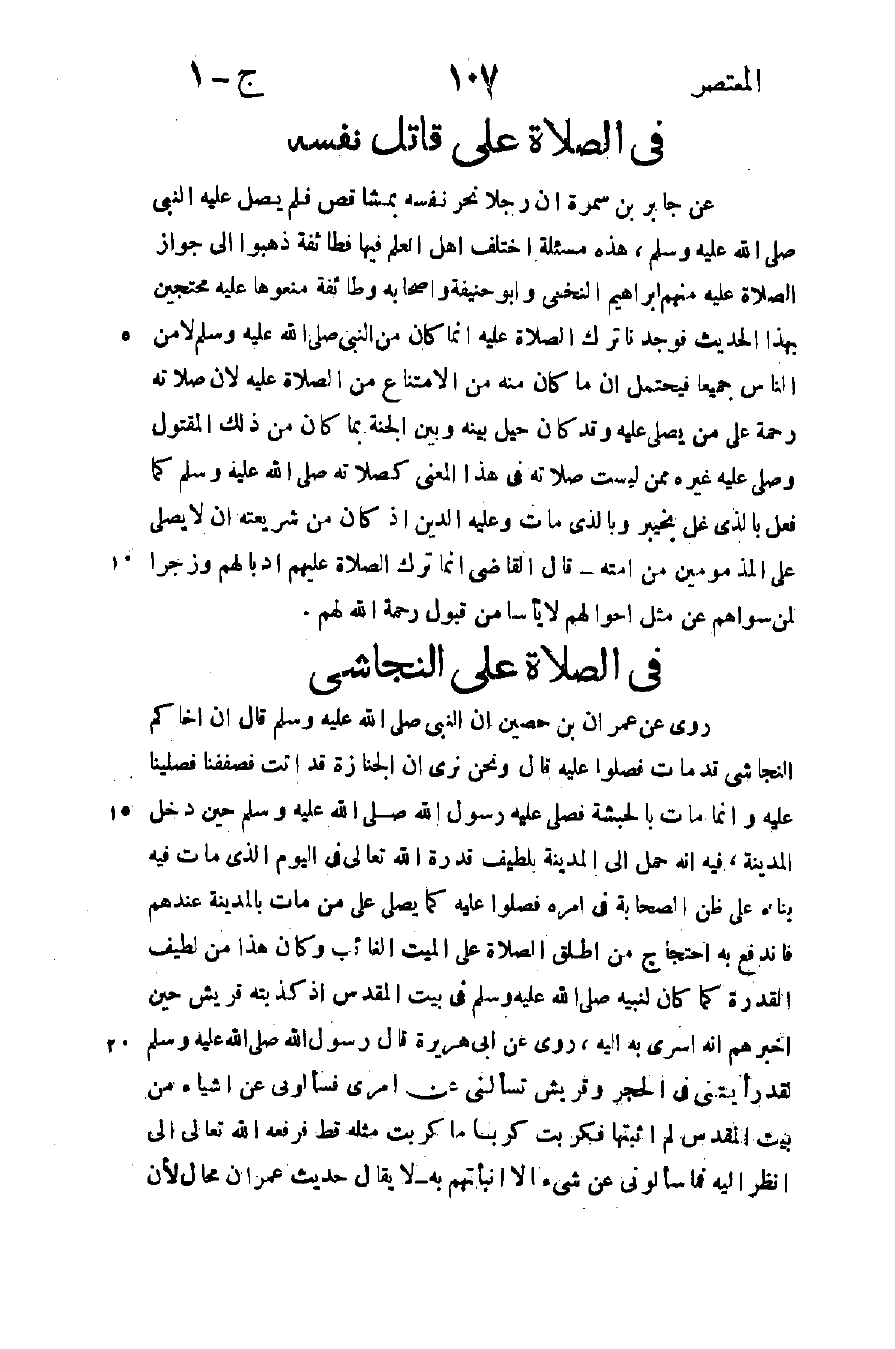 المعتصر ١٠٧ ج – ١
فى الصلاة على قاتل نفسه
عن جابر بن سمرة ان رجلا نحر نفسه بمشاقص فلم يصل عليه النبى
صلى الله عليه وسلم ، هذه مسئلة اختلف اهل العلم فيها فطائفة ذهبوا الى جواز
الصلاة عليه منهم ابراهيم النخعى وابو حنيفة واصحابه وطائفة منعوها عليه محتجين
بهذا الحديث فوجدنا ترك الصلاة عليه انما كان من النبى صلى الله عليه وسلم لا من ٥
الناس جميعا فيحتمل ان ما كان منه من الامتناع من الصلاة عليه لان صلاته
رحمة على من يصلى عليه وقد كان حيل بينه وبين الجنة بما كان من ذلك المقتول
وصلى عليه غيره ممن ليست صلاته فى هذا المعنى كصلاته صلى الله عليه وسلم كما
فعل بالذى غل بخيبر وبالذى مات وعليه الدين اذ كان من شريعته ان لا يصلى
على المذمومين من امته – قال القاضى انما ترك الصلاة عليهم ادبا لهم وزجرا ١٠
لمن سواهم عن مثل احوالهم لا يأسا من قبول رحمة الله لهم .
فى الصلاة على النجاشى
روى عن عمران بن حصين ان النبى صلى الله عليه وسلم قال ان اخاكم
النجاشى قد مات فصلوا عليه قال ونحن نرى ان الجنازة قد اتت فصففنا فصلينا
عليه وانما مات بالحبشة فصلى عليه رسول الله صلى الله عليه وسلم حين دخل ١٥
المدينة ، فيه انه حمل الى المدينة بلطيف قدرة الله تعالى فى اليوم الذى مات فيه
بناء على ظن الصحابة فى امره فصلوا عليه كما يصلى على من مات بالمدينة عندهم
فاندفع به احتجاج من اطلق الصلاة على الميت الغائب وكان هذا من لطيف
القدرة كما كان لنبيه صلى الله عليه وسلم فى بيت المقدس اذ كذبته قريش حين
اخبرهم انه اسرى به اليه ، روى عن ابى هريرة قال رسول الله صلى الله عليه وسلم ٢٠
لقد رأيتنى فى الحجر وقريش تسألنى عن امرى فسألونى عن اشياء من
بيت المقدس لم اثبتها فكربت كربا ما كربت مثله قط فرفعه الله تعالى الى
انظر اليه فما سألونى عن شىء الا انبأتهم به – لا يقال حديث عمران محال لأن